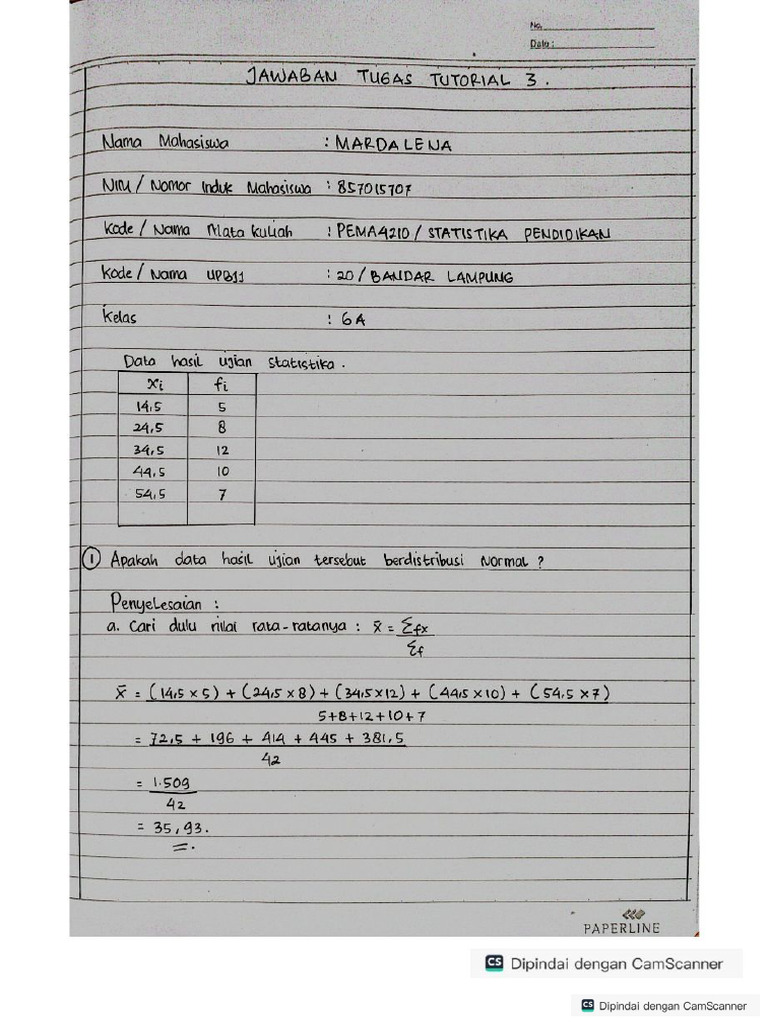 No.
Date :
JAWABAN TUGAS TUTORIAL 3.
Nama Mahasiswa : MARDALENA
NIM / Nomor Induk Mahasiswa : 857015707
Kode / Nama Mata kuliah : PEMA4210 / STATISTIKA PENDIDIKAN
Kode / Nama UPBJJ : 20 / BANDAR LAMPUNG
Kelas : 6A
Data hasil ujian statistika.
xi fi
14,5 5
24,5 8
34,5 12
44,5 10
54,5 7
① Apakah data hasil ujian tersebut berdistribusi Normal ?
Penyelesaian :
a. Cari dulu nilai rata-ratanya : x̄ = Σfx
Σf
x̄ = (14,5 x 5) + (24,5 x 8) + (34,5 x 12) + (44,5 x 10) + (54,5 x 7)
5+8+12+10+7
= 72,5 + 196 + 414 + 445 + 381,5
42
= 1.509
42
= 35,93.
PAPERLINE
CS Dipindai dengan CamScanner
CS Dipindai dengan CamScanner